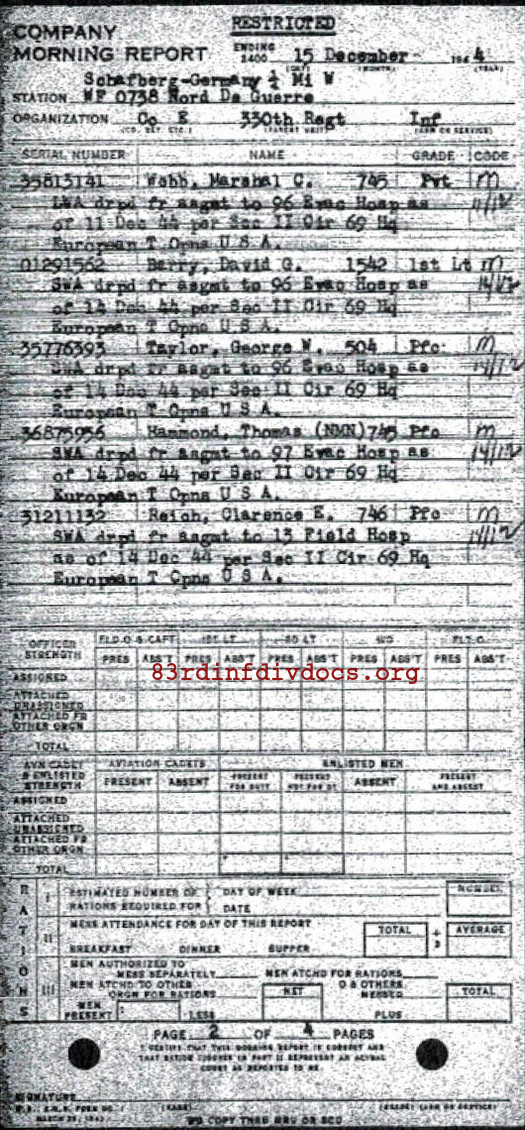 RESTRICTED
COMPANY
MORNING REPORT ENDING 2400 15 December 194 4
(DAY) (MONTH) (YEAR)
Schafberg-Germany ½ Mi W
STATION WF 0738 Nord De Guerre
ORGANIZATION Co E 330th Regt Inf
(CO, DET, ETC.) (PARENT UNIT) (ARM OR SERVICE)
SERIAL NUMBER NAME GRADE CODE
35813141 Webb, Marshal C. 745 Pvt M
LWA drpd fr asgmt to 96 Evac Hosp as 11/12
of 11 Dec 44 per Sec II Cir 69 Hq
European T Opns U S A.
01291562 Barry, David G. 1542 1st Lt M
SWA drpd fr asgmt to 96 Evac Hosp as 14/12
of 14 Dec 44 per Sec II Cir 69 Hq
European T Opns U S A.
35776393 Taylor, George W. 504 Pfc M
SWA drpd fr asgmt to 96 Evac Hosp as 14/12
of 14 Dec 44 per Sec II Cir 69 Hq
European T Opns U S A.
36875956 Hammond, Thomas (NMN) 745 Pfc M
SWA drpd fr asgmt to 97 Evac Hosp as 14/12
of 14 Dec 44 per Sec II Cir 69 Hq
European T Opns U S A.
31211132 Reich, Clarence E. 746 Pfc M
SWA drpd fr asgmt to 13 Field Hosp 14/12
as of 14 Dec 44 per Sec II Cir 69 Hq
European T Opns U S A.
OFFICER STRENGTH FLD O & CAPT 1ST LT 2D LT WO FLT O
PRES ABS'T PRES ABS'T PRES ABS'T PRES ABS'T PRES ABS'T
83rdinfdivdocs.org
ASSIGNED
ATTACHED UNASSIGNED
ATTACHED FR OTHER ORGN
TOTAL
AVN CADET & ENLISTED STRENGTH AVIATION CADETS ENLISTED MEN
PRESENT ABSENT PRESENT FOR DUTY PRESENT NOT FOR DY ABSENT PRESENT AND ABSENT
ASSIGNED
ATTACHED UNASSIGNED
ATTACHED FR OTHER ORGN
TOTAL
RATIONS
I ESTIMATED NUMBER OF RATIONS REQUIRED FOR DAY OF WEEK DATE NUMBER
II MESS ATTENDANCE FOR DAY OF THIS REPORT TOTAL ÷ 3 AVERAGE
BREAKFAST DINNER SUPPER
III MEN AUTHORIZED TO MESS SEPARATELY MEN ATCHD FOR RATIONS
MEN ATCHD TO OTHER ORGN FOR RATIONS NET O & OTHERS MESSED TOTAL
MEN PRESENT LESS PLUS
PAGE 2 OF 4 PAGES
I CERTIFY THAT THIS MORNING REPORT IS CORRECT AND
THAT RATION FIGURES IN PART II REPRESENT AN ACTUAL
COUNT AS REPORTED TO ME.
SIGNATURE
W.D., A.G.O. FORM NO. 1 (NAME) (GRADE) (ARM OR SERVICE)
MARCH
WD COPY THRU MRU OR SCU